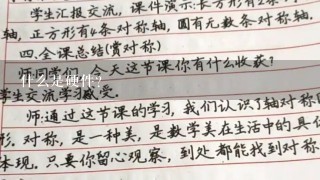 学生汇报交流，课件演示：长方形有2条
轴，正方形有4条对称轴，圆有无数条对称轴.
四.全课总结（赏对称）
师：同学们，今天这节课你有什么收获？
什么是硬件？
学生交流学习感受.
师：通过这节课的学习，我们认识了轴对称图
形.对称，是一种美，是数学美在生活中的具体
体现.只要你留心观察，到处都能找到对称